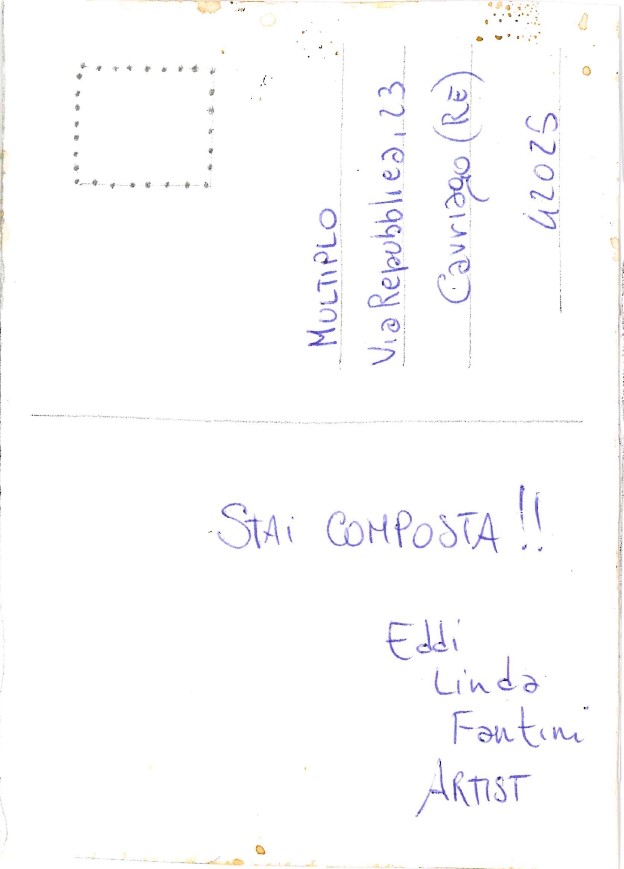 MULTIPLO
Via Repubblica, 23
Cavriago (RE)
42025
STAI COMPOSTA!!
Eddi
Linda
Fantini
ARTIST